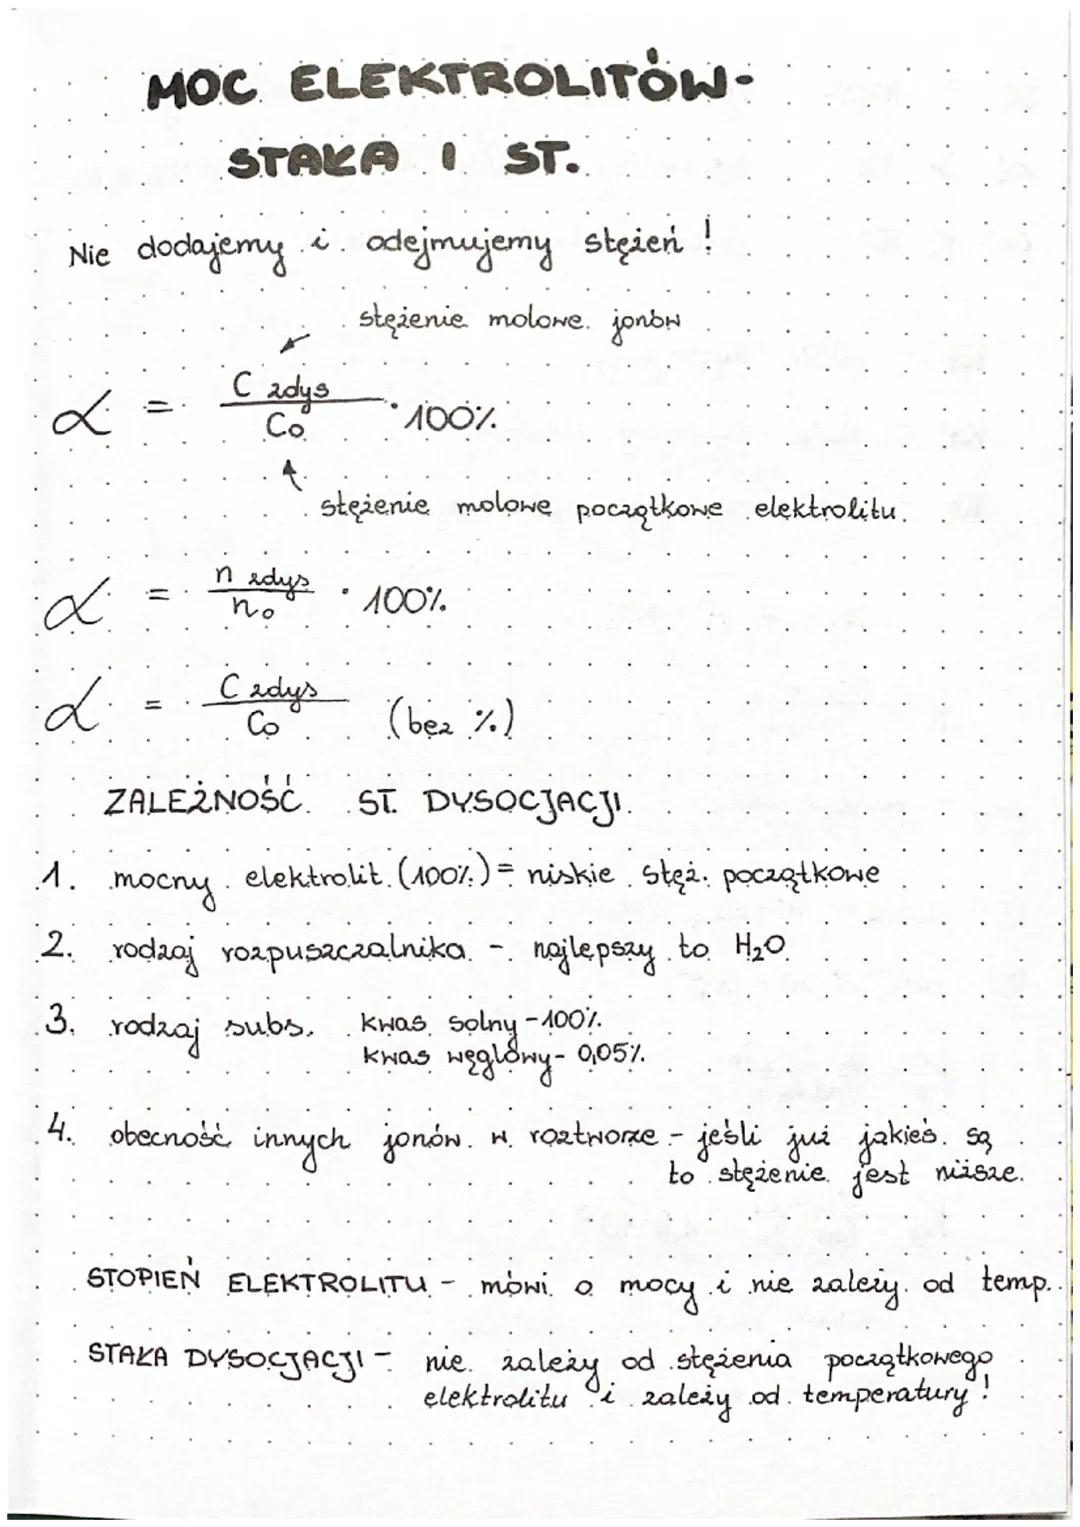 MOC ELEKTROLITÓW-
STAŁA I ST.
Nie dodajemy i odejmujemy stężeń!
stężenie molowe jonów
α = C zdys / Co · 100%
stężenie molowe początkowe elektrolitu
α = n zdys / no · 100%
α = C zdys / Co (bez %)
ZALEŻNOŚĆ ST. DYSOCJACJI
1. mocny elektrolit (100%) = niskie stęż. początkowe
2. rodzaj rozpuszczalnika - najlepszy to H₂O
3. rodzaj subs. kwas solny - 100%
kwas węglowy - 0,05%
4. obecność innych jonów w roztworze - jeśli już jakieś są
to stężenie jest niższe.
STOPIEŃ ELEKTROLITU - mówi o mocy i nie zależy od temp.
STAŁA DYSOCJACJI - nie zależy od stężenia początkowego
elektrolitu i zależy od temperatury!